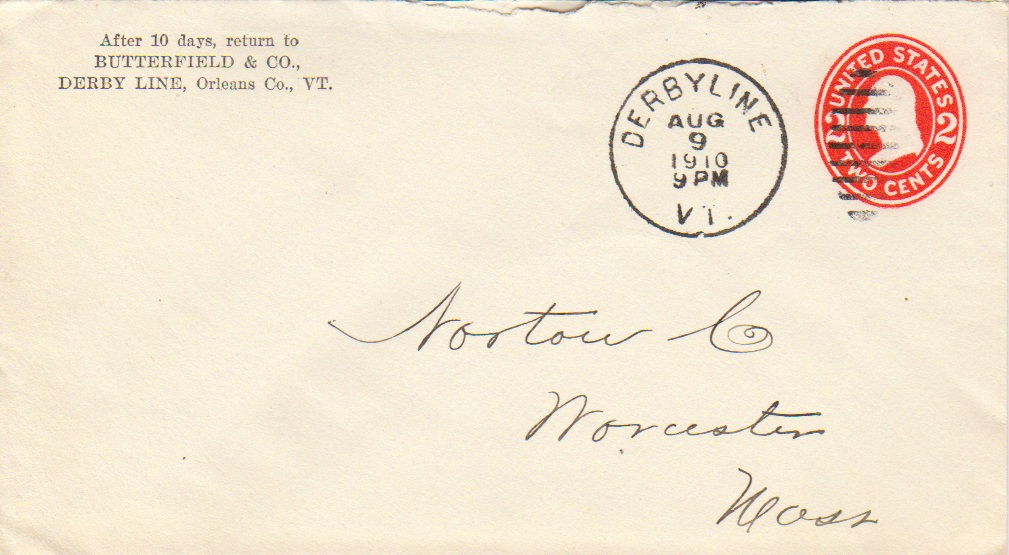 After 10 days, return to
BUTTERFIELD & CO.,
DERBY LINE, Orleans Co., VT.
DERBY LINE
AUG
9
1910
9 PM
VT.
UNITED STATES
2 2
TWO CENTS
Norton Co
Worcester
Mass